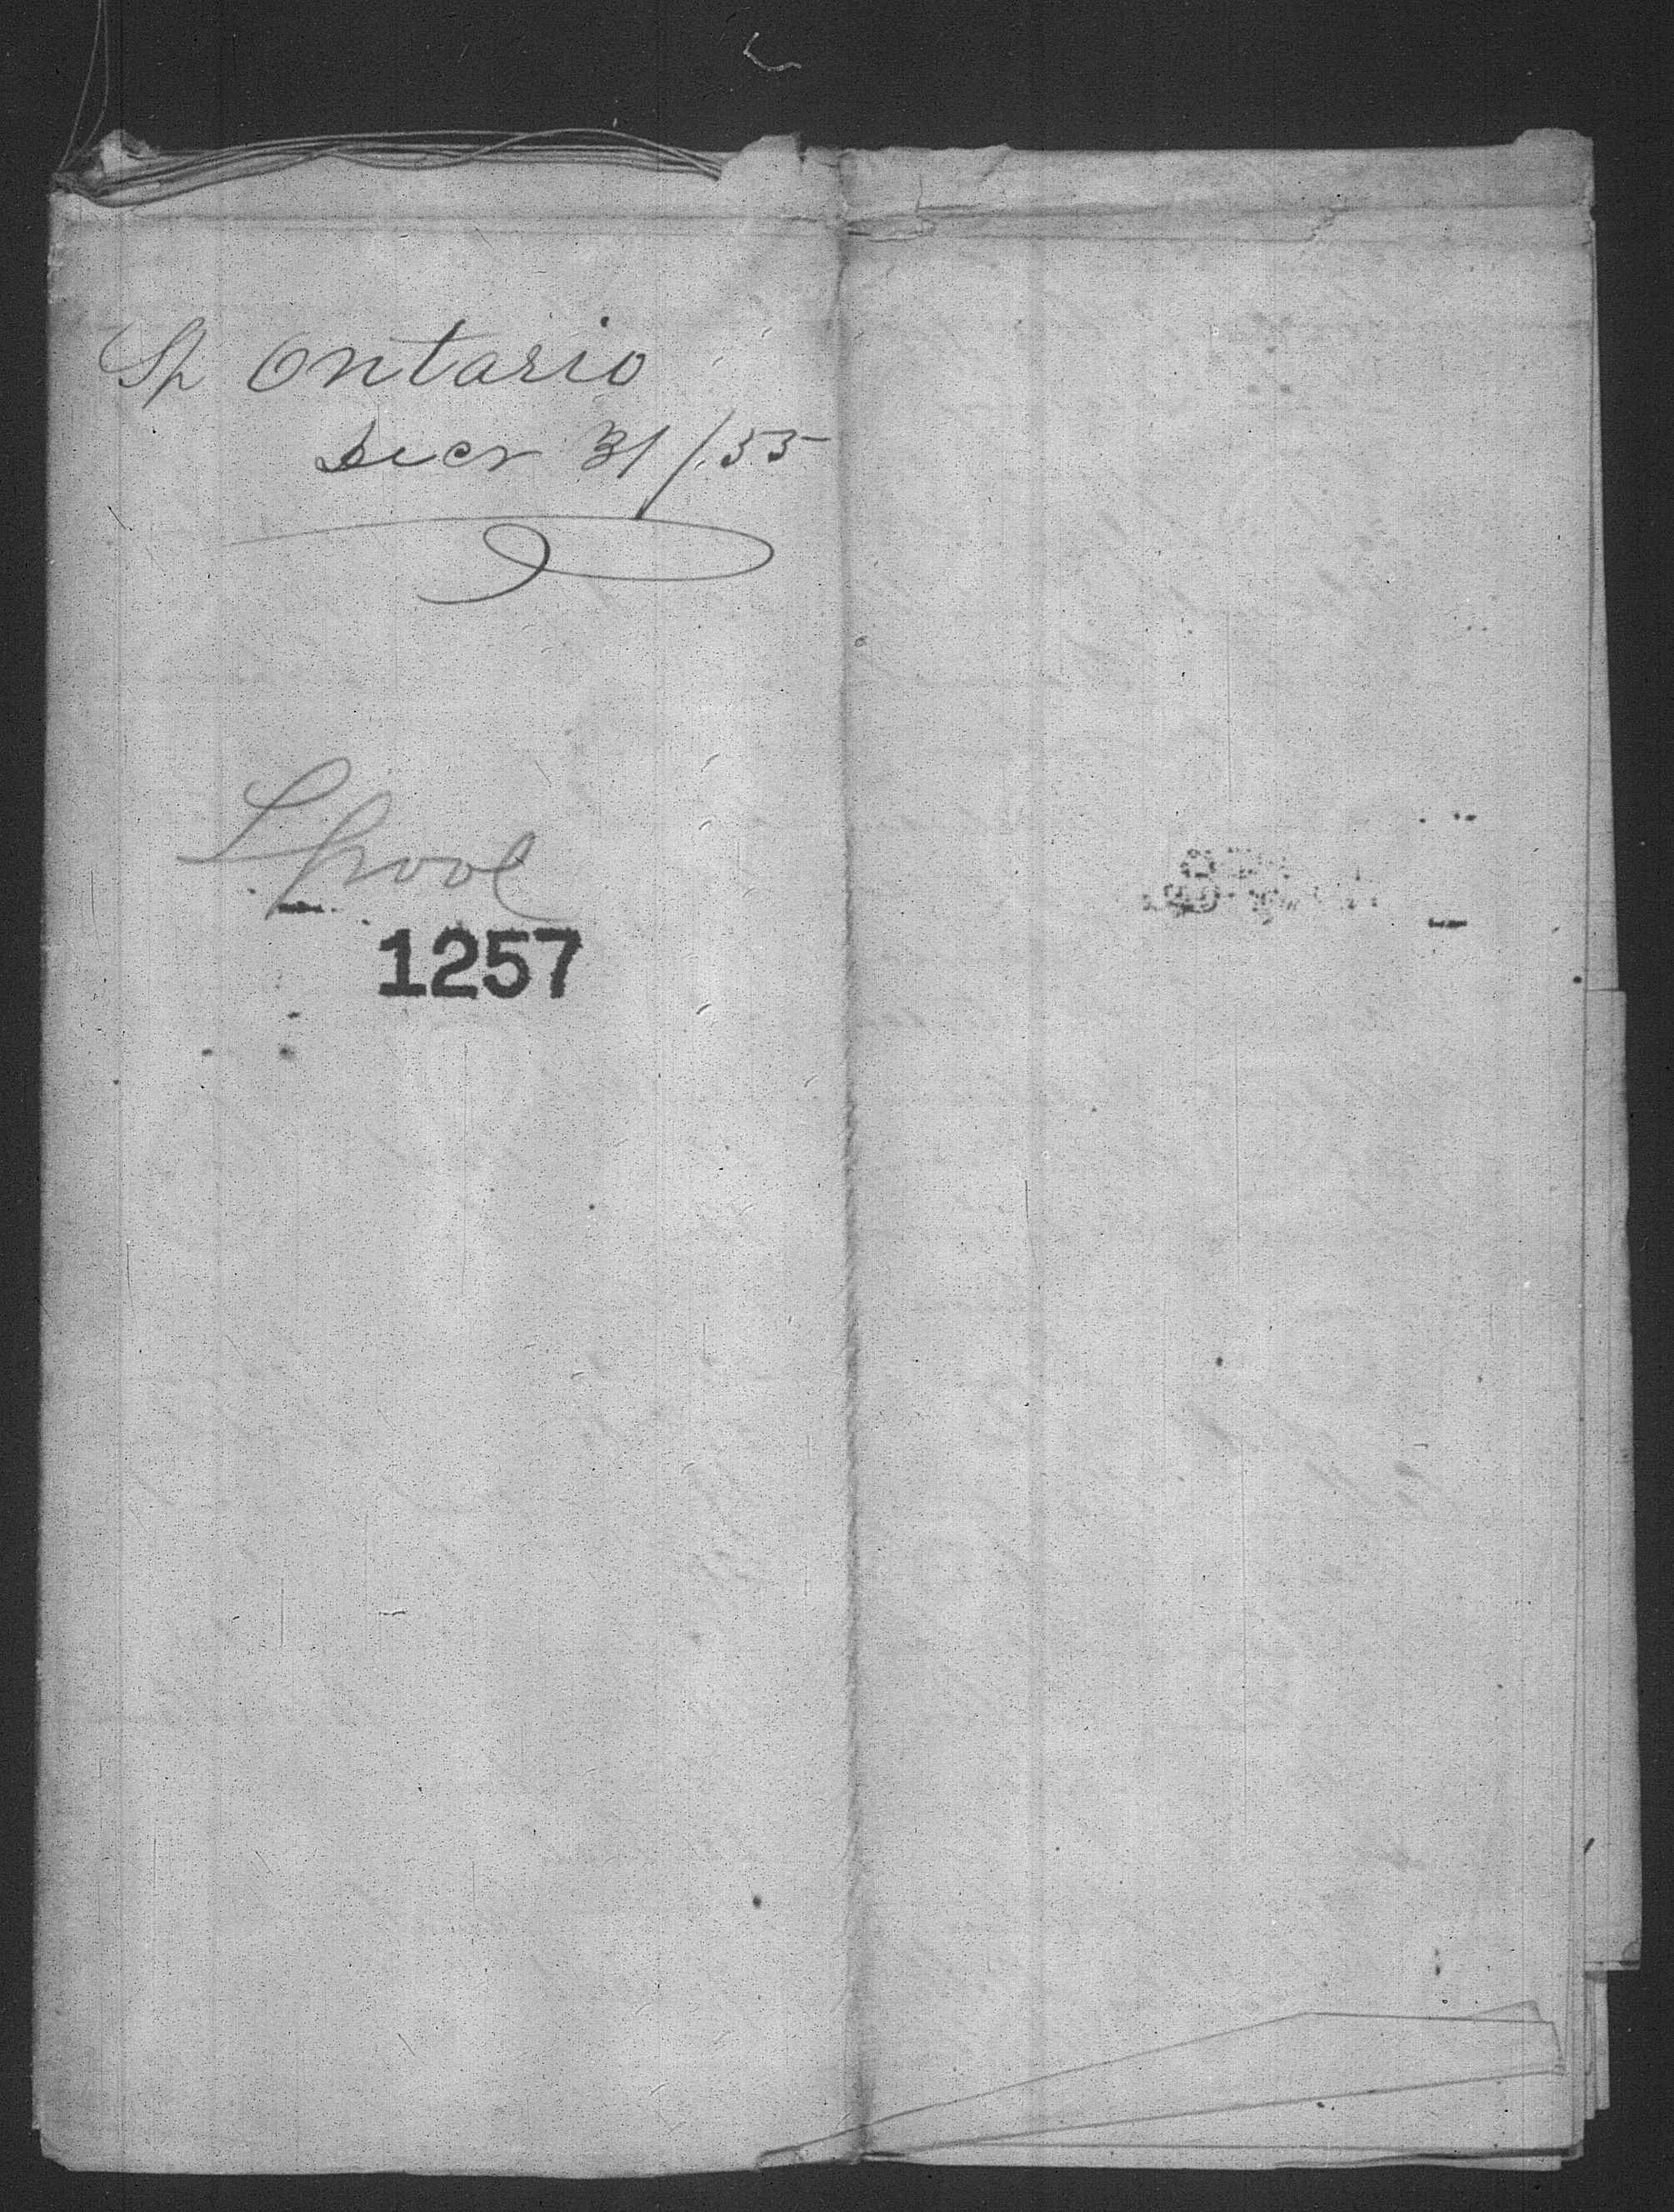 Sp Ontario
Decr 31/55
Lpool
1257